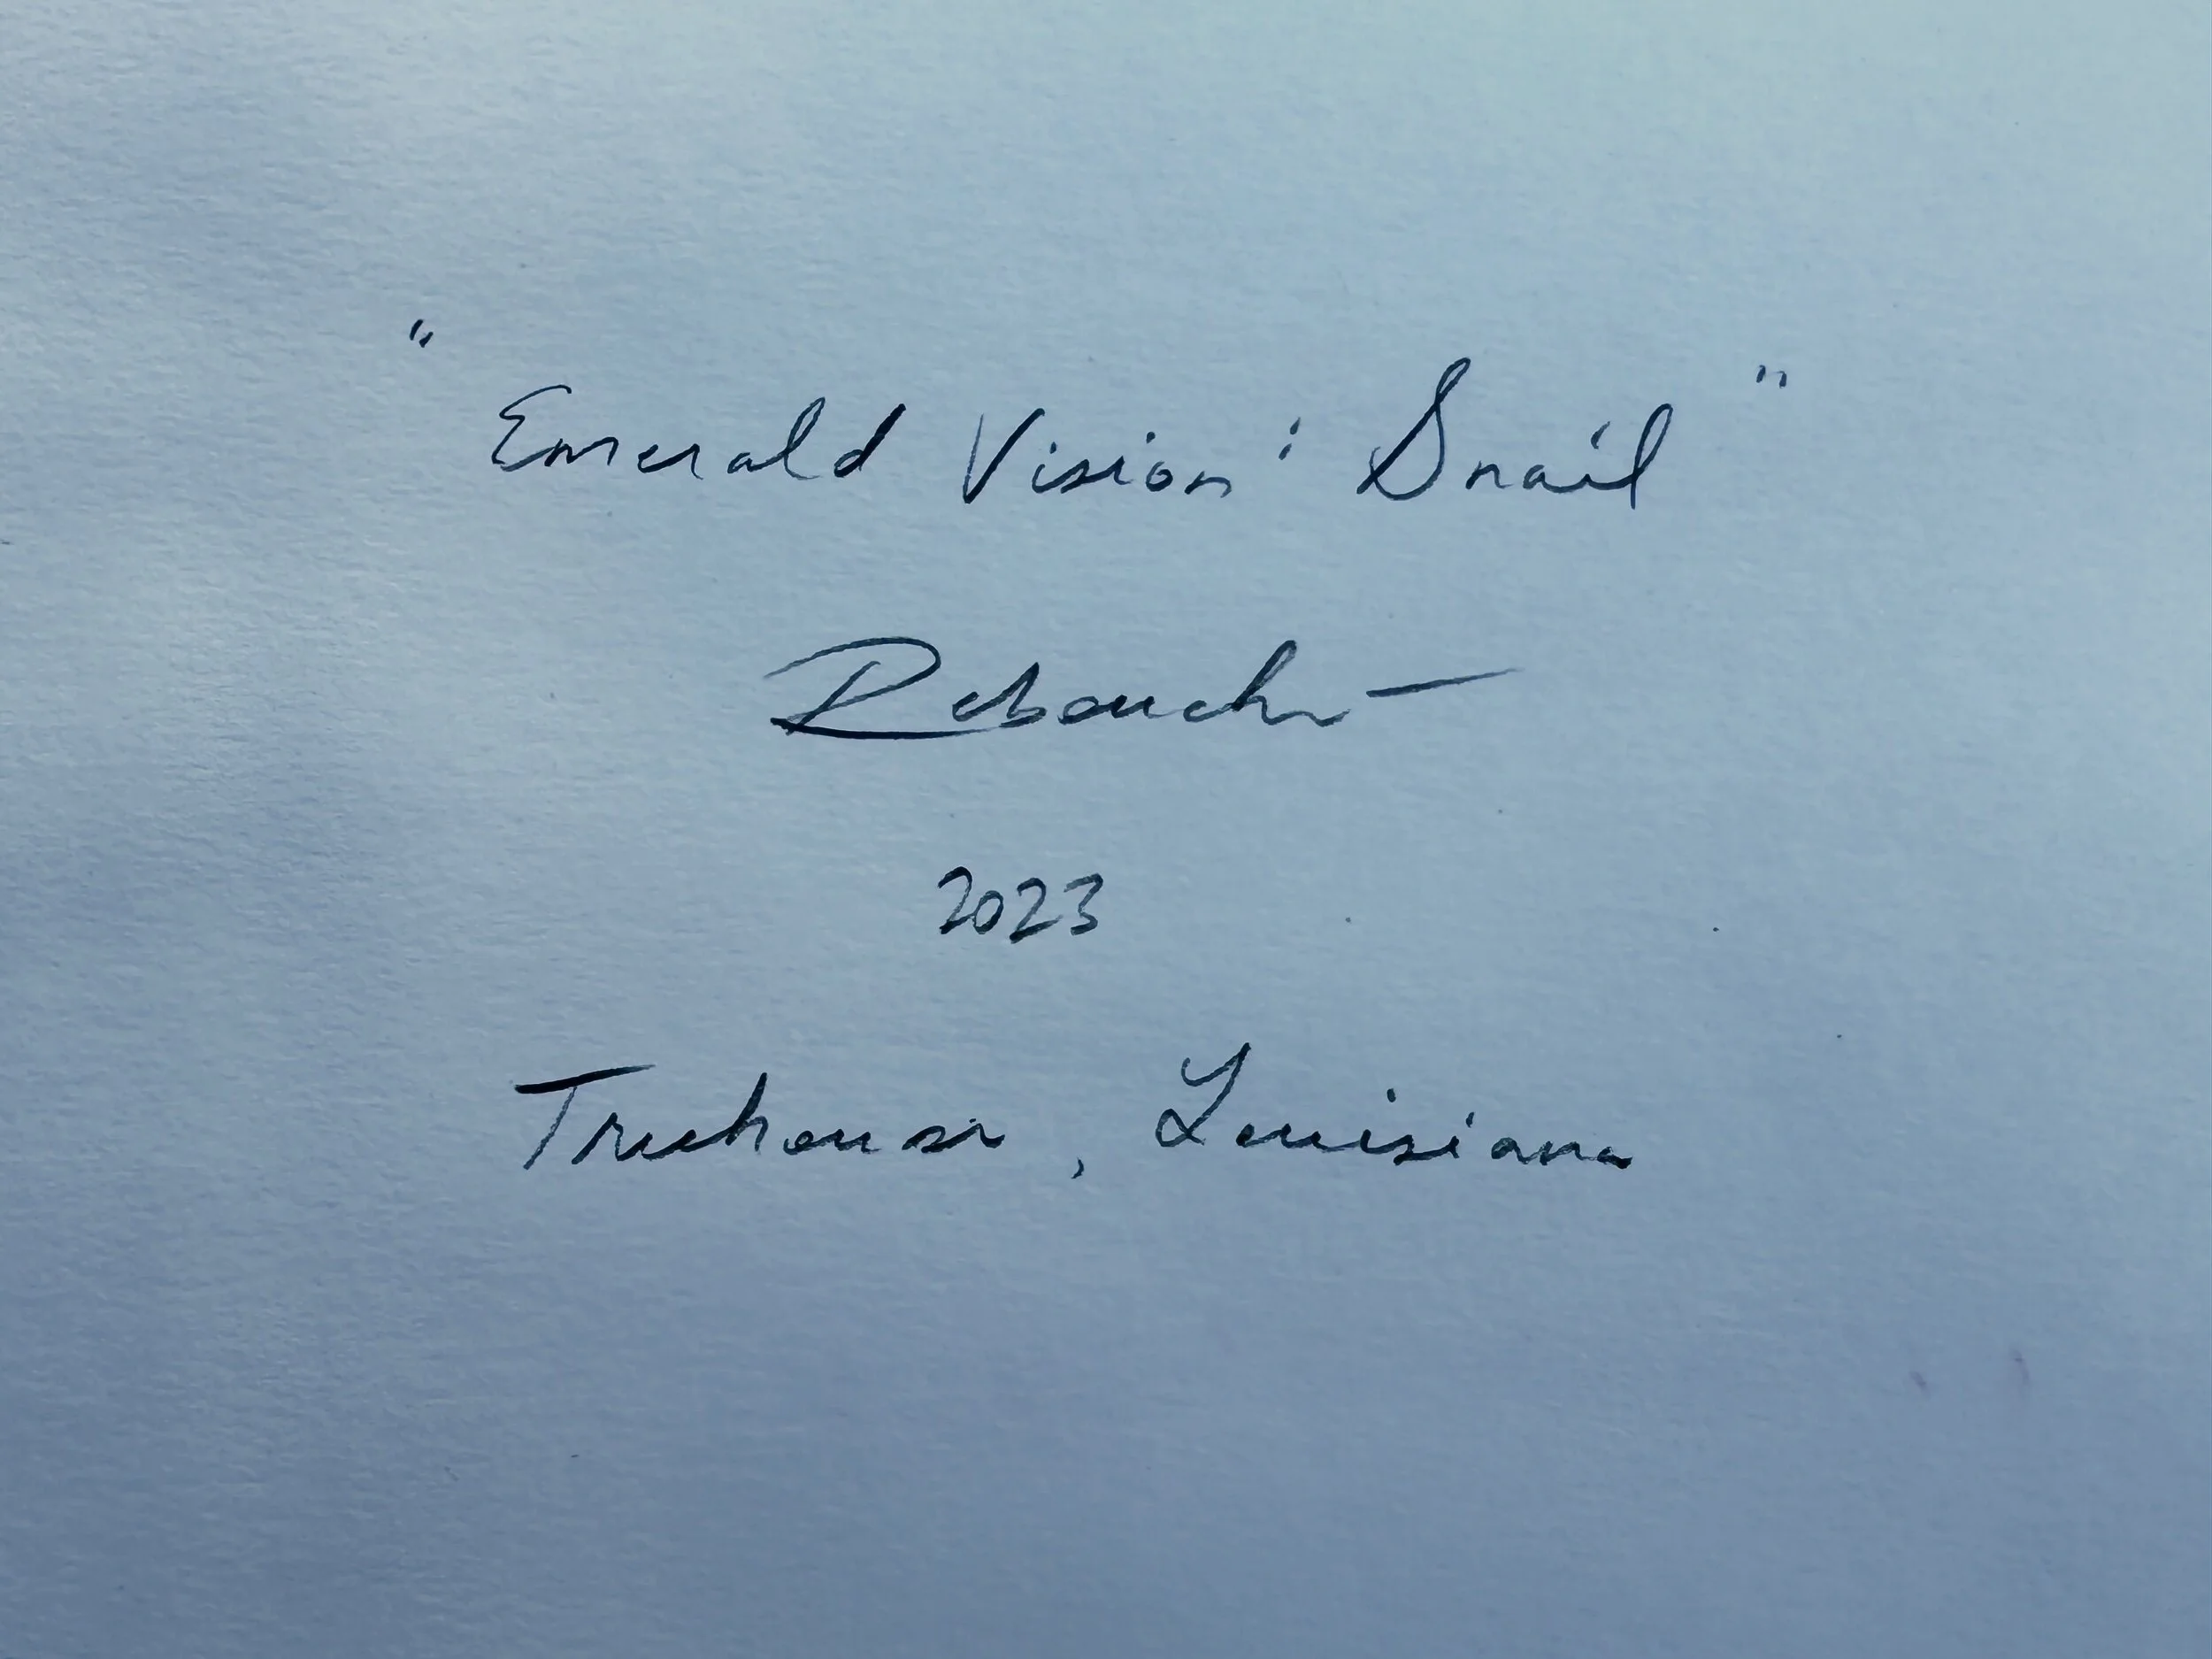 "Emerald Vision: Snail"
Rebouche
2023
Treehouse, Louisiana